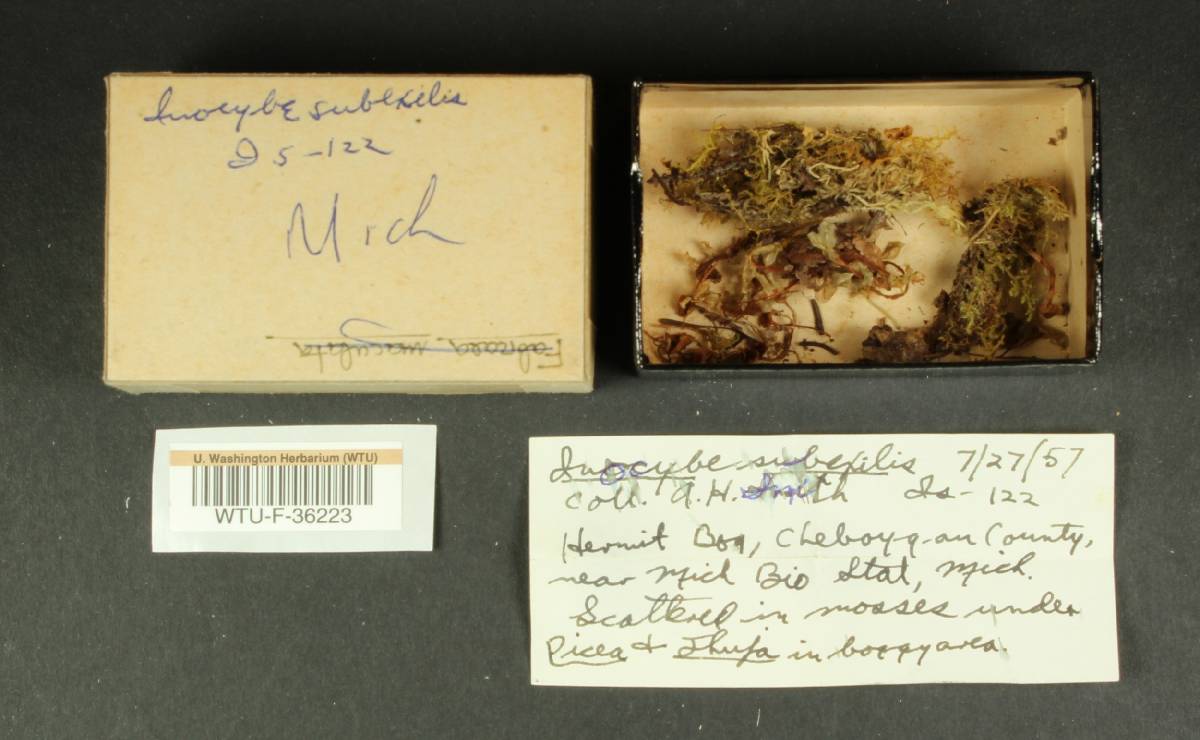 Inocybe subexilis
Is-122
Mich
Fabraea maculata
U. Washington Herbarium (WTU)
WTU-F-36223
Inocybe subexilis 7/27/57
Coll. A.H. Smith Is-122
Hermit Bog, Cheboygan County,
near Mich Bio Stat, Mich.
Scattered in mosses under
Picea & Thuja in boggy area.